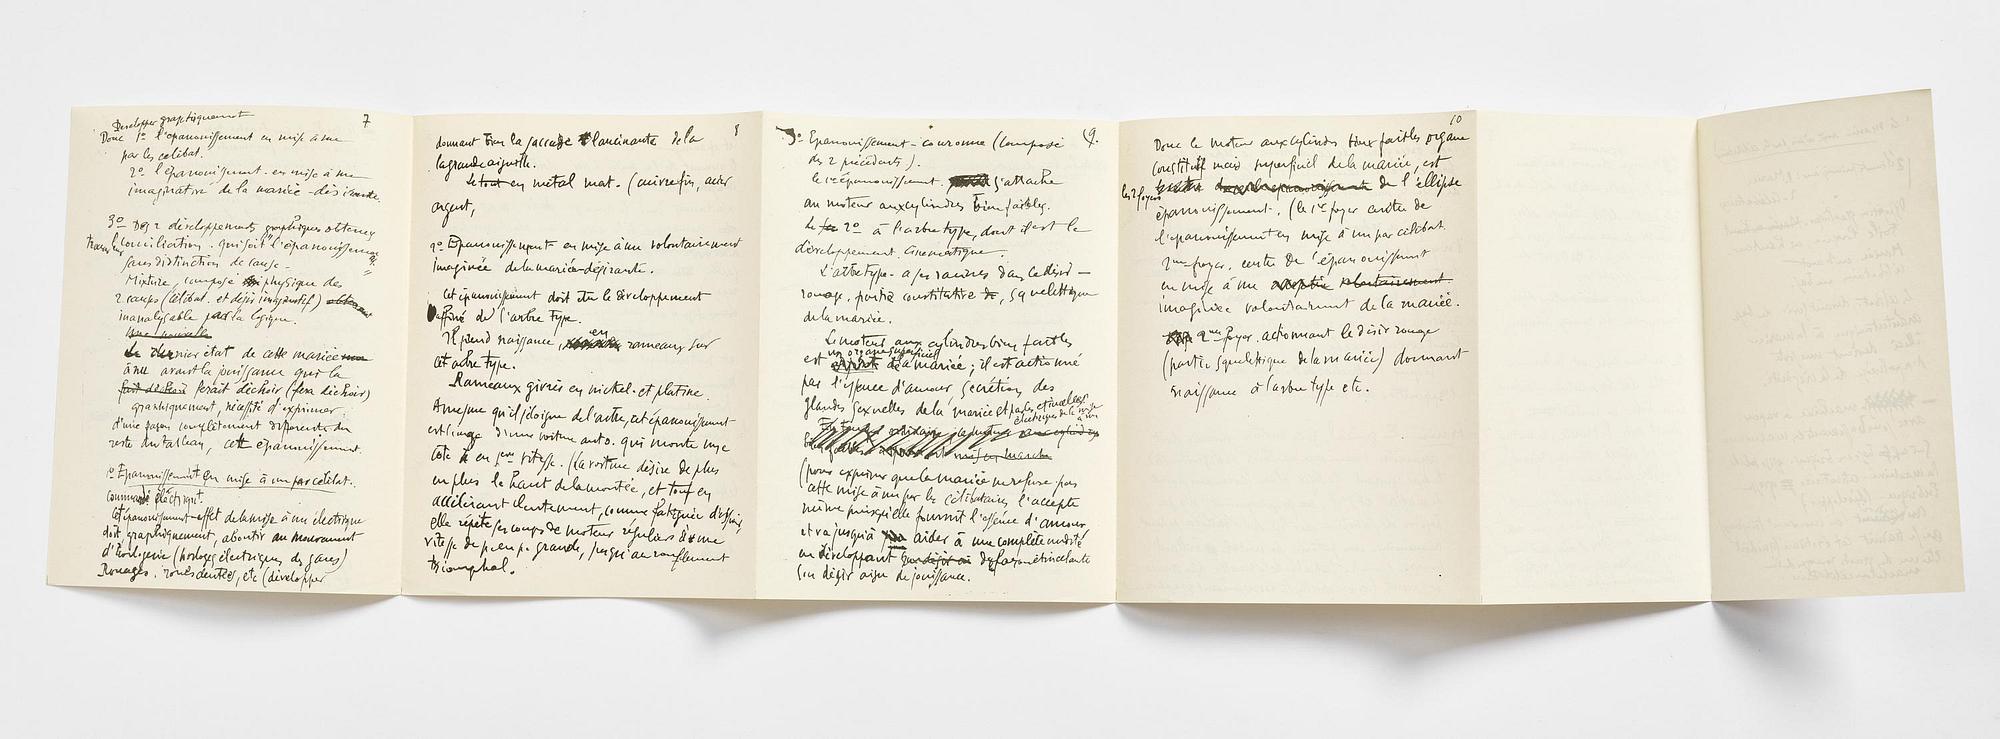 7
Developper graphiquement
Donc 1º l'épanouissement en mise à nu
par les célibat.
2º l'épanouissement en mise à nu
imaginative de la mariée-désirante.
3º Des 2 développements graphiques obtenus
trouver leur conciliation. qui soit l'"épanouissement"
sans distinction de cause-
Mixture, composé physique des
2 causes (célibat. et désir imaginatif)
inanalysable par la logique.
Une nouvelle
Le dernier état de cette mariée nue
à nu avant la jouissance qui la
fait déchoir ferait déchoir (fera déchoir)
graphiquement, nécessité d'exprimer.
d'une façon complètement différente du
reste du tableau, cet épanouissement.
1º Epanouissement en mise à nu par célibat.
commande électriqt.
Cet épanouissement-effet de la mise à nu électrique
doit, graphiquement, aboutir au mouvement
d'horlogerie (horloges électriques des gares)
Rouages. roues dentées, etc (développer
8
donnant bien la saccade lancinante de la
la grande aiguille.
Le tout en métal mat. (cuivre fin, acier
argent,
2º Epanouissement en mise à nu volontairement
imaginée de la mariée-désirante.
Cet épanouissement doit être le développement
affiné de l'arbre type.
Il prend naissance, en rameaux sur
cet arbre type.
Rameaux givrés en nickel et platine.
A mesure qu'il s'éloigne de l'arbre, cet épanouissement
est l'image d'une voiture auto. qui monte une
côte en 1ère vitesse. (La voiture désire de plus
en plus le haut de la montée, et tout en
accélérant lentement, comme fatiguée d'espoir,
elle répète ses coups de moteur réguliers à une
vitesse de plus en plus grande, jusqu'au ronflement
triomphal.
9.
3º Epanouissement-couronne (Composé
des 2 précédents).
le 1er épanouissement. s'attache
au moteur aux cylindres bien faibles.
Le 2º à l'arbre type, dont il est le
développement cinématique.
L'arbre type- a ses racines dans le désir-
rouage, partie constitutive de, squelettique
de la mariée.
Le moteur aux cylindres bien faibles
est un organe superficiel de la mariée; il est actionné
par l'essence d'amour, sécrétion des
glandes sexuelles de la mariée et par les étincelles
électriques de la mise
à nu
(pour exprimer que la mariée ne refuse pas
cette mise à nu par les célibataires, l'accepte
même puisqu'elle fournit l'essence d'amour,
et va jusqu'à aider à une complète nudité
en développant de façon étincelante
son désir aigu de jouissance.
10
Donc le moteur aux cylindres bien faibles organe
constitutif mais superficiel de la mariée, est
les 2 foyers de l'ellipse
épanouissement. (le 1er foyer centre de
l'épanouissement en mise à nu par célibat.
2me foyer, centre de l'épanouissement
en mise à nu volontairement
imaginée volontairement de la mariée.
2me foyer, actionnant le désir rouage
(partie squelettique de la mariée) donnant
naissance à l'arbre type etc.